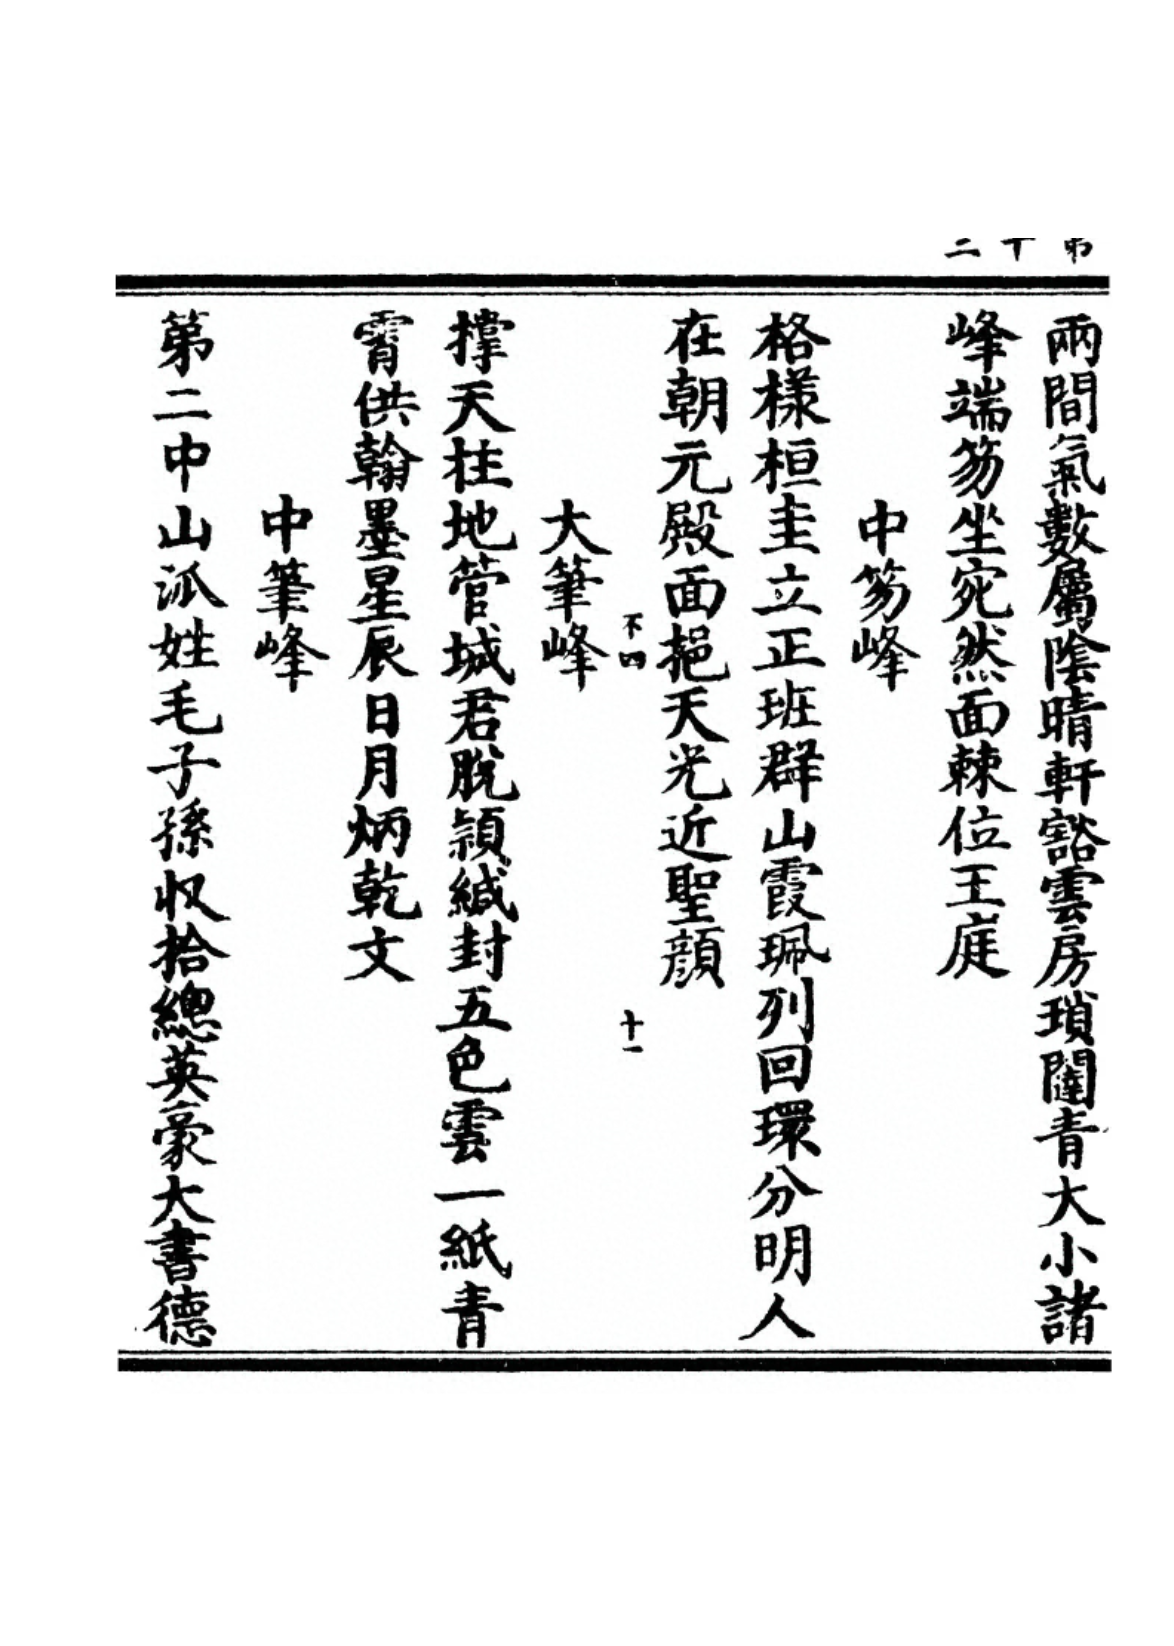 兩間氣數屬隂晴軒豁雲房瑣闥青大小諸
峰端笏坐宛然面棘位王庭
中笏峰
格樣桓圭立正班群山霞珮列回環分明人
在朝元殿面挹天光近聖顔
不四
十一
大筆峰
撑天柱地管城君脫穎緘封五色雲一紙青
霄供翰墨星辰日月炳乾文
中筆峰
第二中山派姓毛子孫収拾總英豪大書德